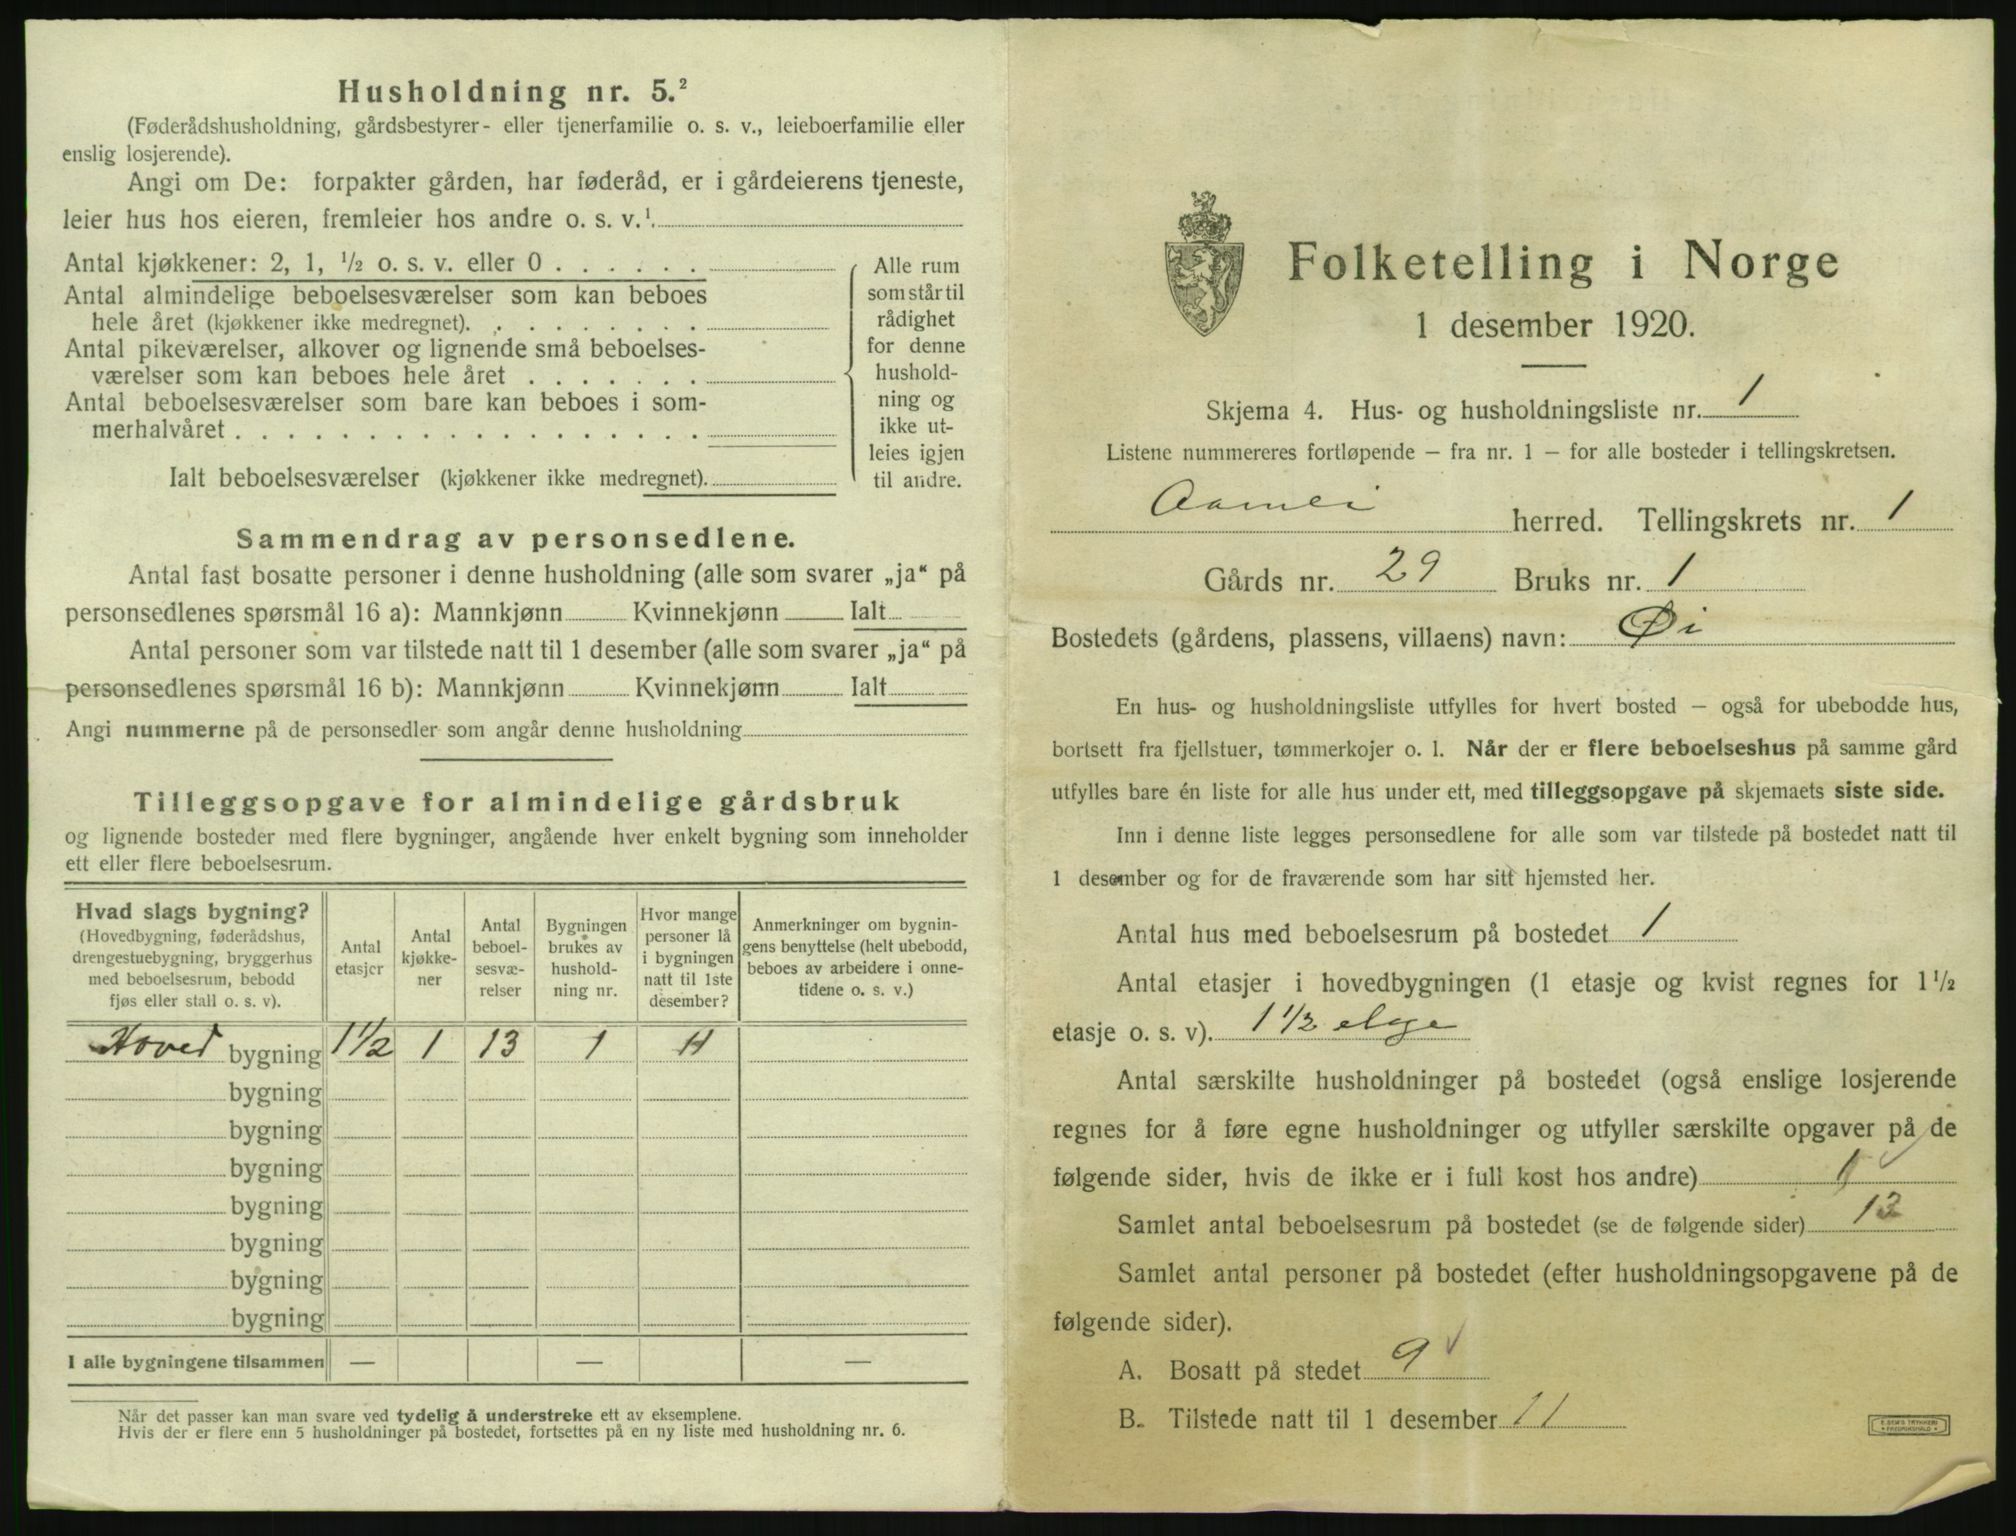 Husholdning nr. 5.²
(Føderådshusholdning, gårdsbestyrer- eller tjenerfamilie o. s. v., leieboerfamilie eller
enslig losjerende).
Angi om De: forpakter gården, har føderåd, er i gårdeierens tjeneste,
leier hus hos eieren, fremleier hos andre o. s. v.¹
Antal kjøkkener: 2, 1, ½ o. s. v. eller 0 . . . . . .
Antal almindelige beboelsesværelser som kan beboes
hele året (kjøkkener ikke medregnet). . . . . . . . .
Antal pikeværelser, alkover og lignende små beboelses-
værelser som kan beboes hele året . . . . . . .
Antal beboelsesværelser som bare kan beboes i som-
merhalvåret . . . . . . . . . . . . . . . . . .
Ialt beboelsesværelser (kjøkkener ikke medregnet).
Alle rum
som står til
rådighet
for denne
hushold-
ning og
ikke ut-
leies igjen
til andre.
Sammendrag av personsedlene.
Antal fast bosatte personer i denne husholdning (alle som svarer „ja“ på
personsedlenes spørsmål 16 a): Mannkjønn Kvinnekjønn Ialt
Antal personer som var tilstede natt til 1 desember (alle som svarer „ja“ på
personsedlenes spørsmål 16 b): Mannkjønn Kvinnekjønn Ialt
Angi nummerne på de personsedler som angår denne husholdning
Tilleggsopgave for almindelige gårdsbruk
og lignende bosteder med flere bygninger, angående hver enkelt bygning som inneholder
ett eller flere beboelsesrum.
Hvad slags bygning?
(Hovedbygning, føderådshus,
drengestuebygning, bryggerhus
med beboelsesrum, bebodd
fjøs eller stall o. s. v).
Antal
etasjer
Antal
kjøkke-
ner
Antal
beboel-
sesvæ-
relser
Bygningen
brukes av
hushold-
ning nr.
Hvor mange
personer lå
i bygningen
natt til 1ste
desember?
Anmerkninger om bygnin-
gens benyttelse (helt ubebodd,
beboes av arbeidere i onne-
tidene o. s. v.)
Hoved bygning 1½ 1 13 1 11
bygning
bygning
bygning
bygning
bygning
bygning
bygning
I alle bygningene tilsammen — — —
Når det passer kan man svare ved tydelig å understreke ett av eksemplene.
Hvis der er flere enn 5 husholdninger på bostedet, fortsettes på en ny liste med husholdning nr. 6.
Folketelling i Norge
1 desember 1920.
Skjema 4. Hus- og husholdningsliste nr. 1
Listene nummereres fortløpende — fra nr. 1 — for alle bosteder i tellingskretsen.
herred. Tellingskrets nr. 1
Gårds nr. 29 Bruks nr. 1
Bostedets (gårdens, plassens, villaens) navn: Øi
En hus- og husholdningsliste utfylles for hvert bosted — også for ubebodde hus,
bortsett fra fjellstuer, tømmerkojer o. l. Når der er flere beboelseshus på samme gård
utfylles bare én liste for alle hus under ett, med tilleggsopgave på skjemaets siste side.
Inn i denne liste legges personsedlene for alle som var tilstede på bostedet natt til
1 desember og for de fraværende som har sitt hjemsted her.
Antal hus med beboelsesrum på bostedet 1
Antal etasjer i hovedbygningen (1 etasje og kvist regnes for 1½
etasje o. s. v). 1½ etage
Antal særskilte husholdninger på bostedet (også enslige losjerende
regnes for å føre egne husholdninger og utfyller særskilte opgaver på de
følgende sider, hvis de ikke er i full kost hos andre) 1
Samlet antal beboelsesrum på bostedet (se de følgende sider) 13
Samlet antal personer på bostedet (efter husholdningsopgavene på de
følgende sider).
A. Bosatt på stedet 9
B. Tilstede natt til 1 desember 11
E. SEM'S TRYKKERI
FREDRIKSHALD